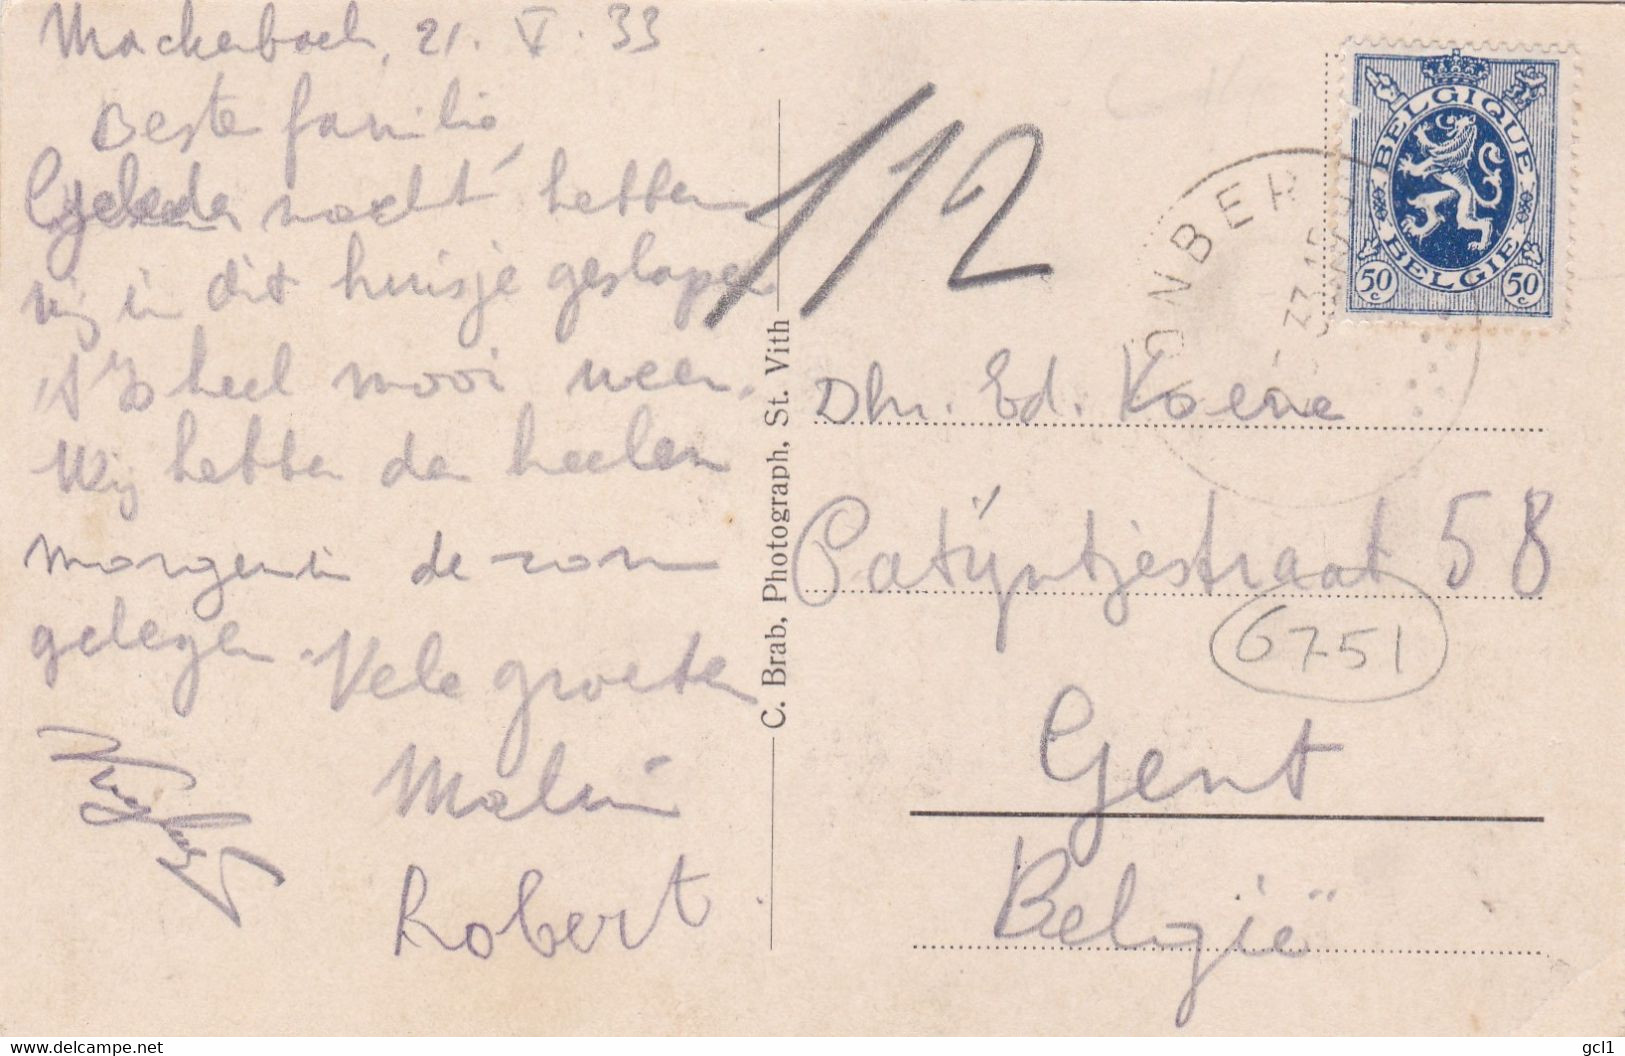 Mackenbach, 21. V. 33
Beste familie
Geleden nacht hebben
wij in dit huisje geslapen
't Is heel mooi weer.
Wij hebben den heelen
morgen in de zon
gelegen. Vele groeten
Malin
Robert
C. Brab, Photograph, St. Vith
112
BELGIQUE
BELGIE
50 c
50 c
ONBER
33
Dhr. Ed. Koene
Patijntjestraat 58
6751
Gent
België
www.delcampe.net
gcl1